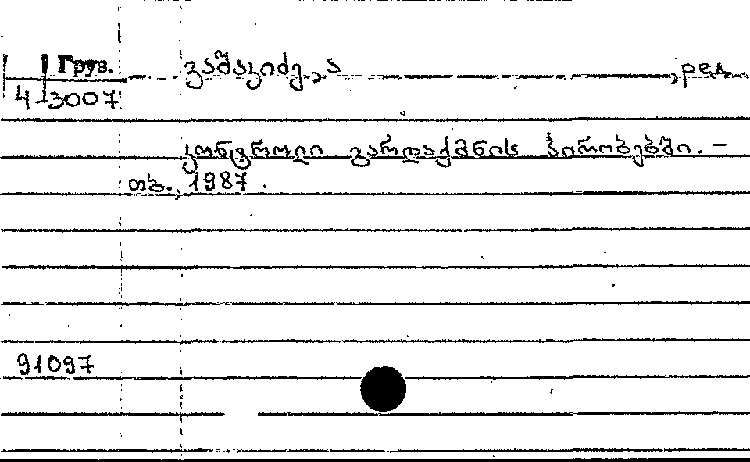 Груз.
გაშაკიძე, ა , ред.
4-3007
კონტროლი გარდაქმნის პირობებში. –
თბ., 1987.
91097